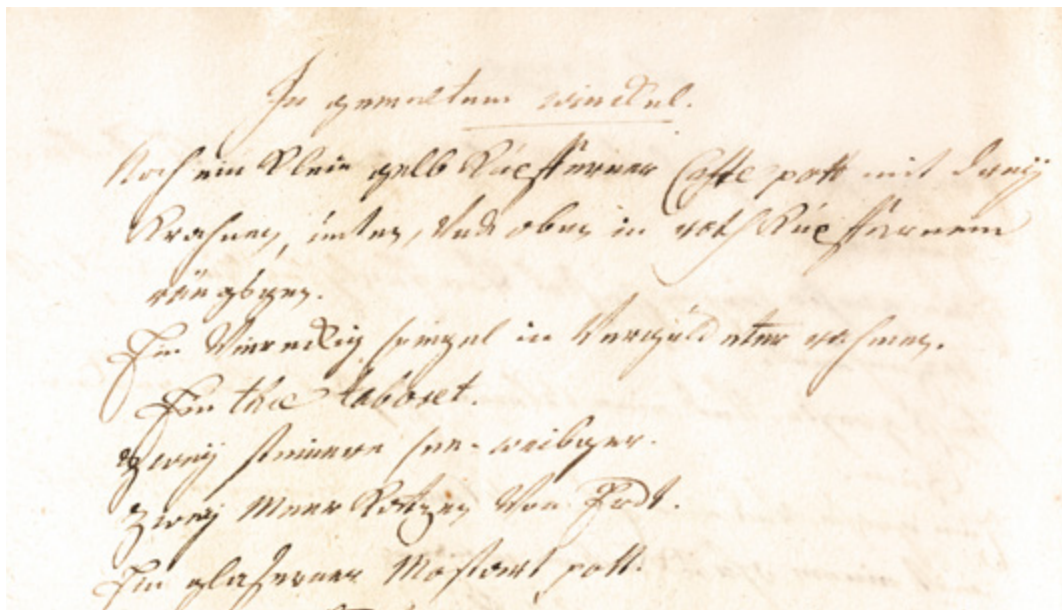 In gemeltem winckel.
Noch ein klein gelb küpfferner Caffe pott mit dreÿ
Krahnen, unten, und oben in roth küpffernem
Ein Viereckig spiegel in Vergüldeter rahmen.
Ein thee taboret.
Zweÿ steinere see-weibger.
Zweÿ Meer Katzen Von Erdt.
Ein glaserner Mostart pott.